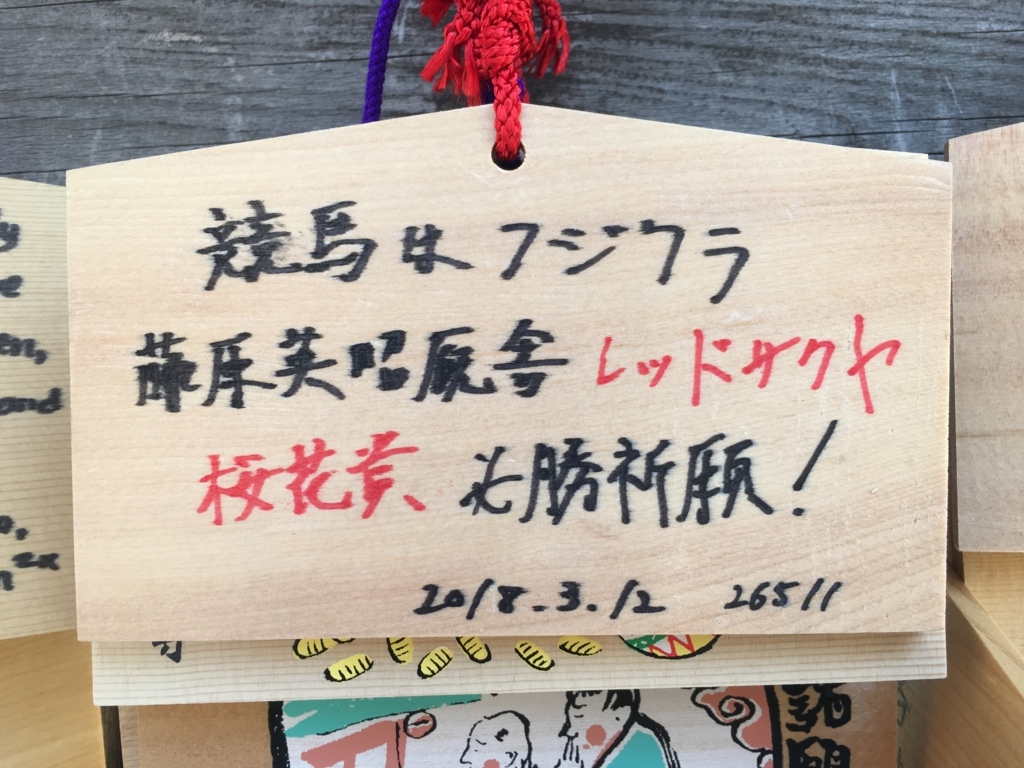 競馬はフジワラ
藤原英昭厩舎 レッドサクヤ
桜花賞、必勝祈願!
2018.3.12 26511
諸願